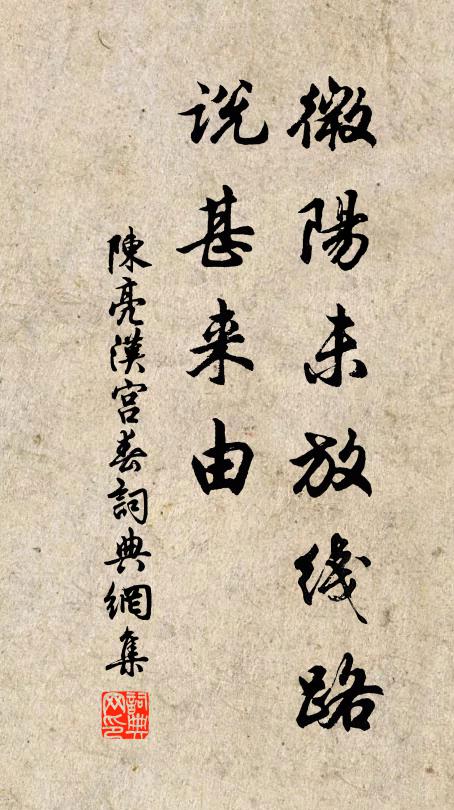 微陽未放线路
説甚来由
陳亮漢宮春詞典網集
詞典网印